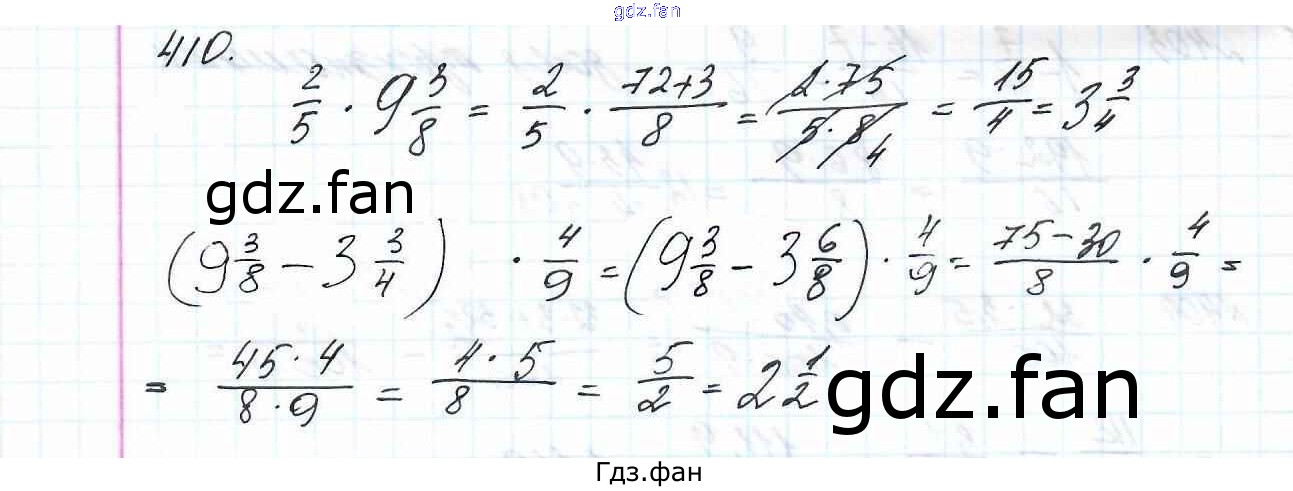 gdz.fan
410.
2/5 · 9 3/8 = 2/5 · (72+3)/8 = (2·75)/(5·8) 4 = 15/4 = 3 3/4
gdz.fan
(9 3/8 − 3 3/4) · 4/9 = (9 3/8 − 3 6/8) · 4/9 = (75−30)/8 · 4/9 =
= (45·4)/(8·9) = (4·5)/8 = 5/2 = 2 1/2
gdz.fan
Гдз.фан